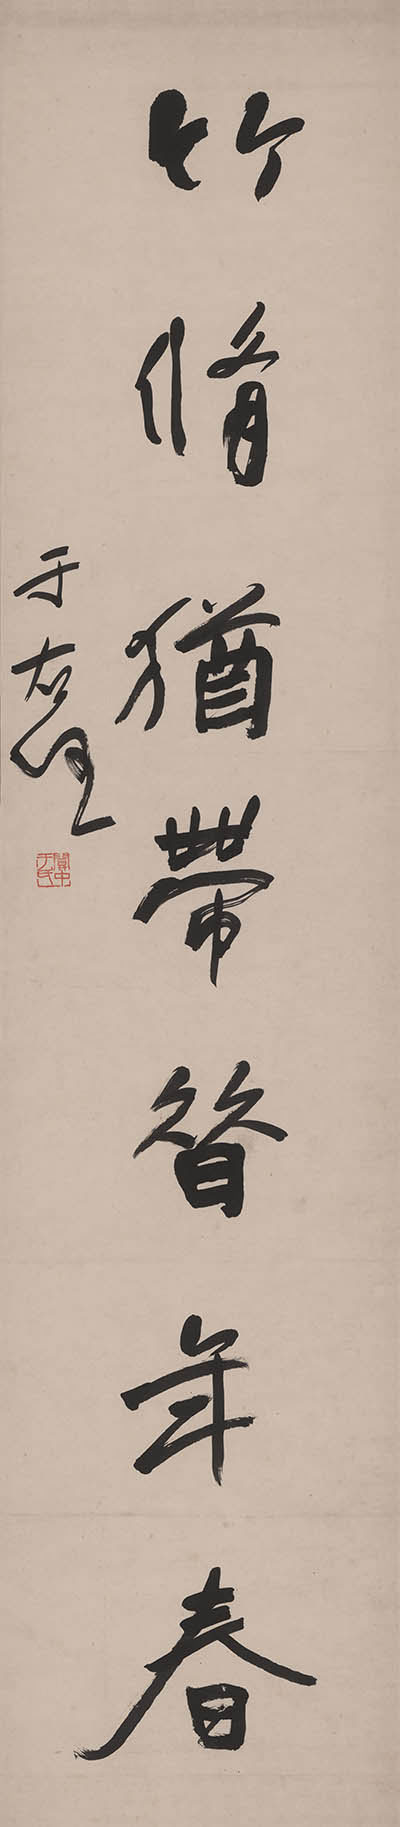 竹脩猶帶晉年春
于右任
關中于氏